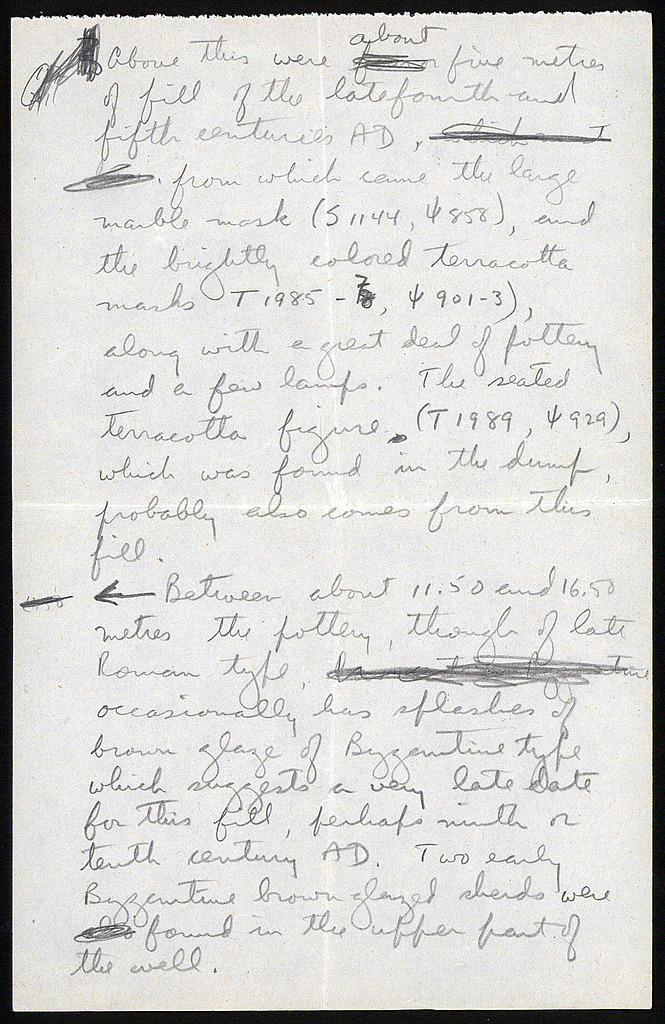 Above this were about five metres
of fill of the late fourth and
fifth centuries AD,
from which came the large
marble mask (S 1144, Ψ 858), and
the brightly colored terracotta
masks T 1985 - 7, Ψ 901-3),
along with a great deal of pottery
and a few lamps. The seated
terracotta figure, (T 1989, Ψ 929),
which was found in the dump,
probably also comes from this
fill.
← Between about 11.50 and 16.50
metres the pottery, though of late
Roman type,
occasionally has splashes of
brown glaze of Byzantine type
which suggests a very late date
for this fill, perhaps ninth or
tenth century AD. Two early
Byzantine brown glazed sherds were
found in the upper part of
the well.